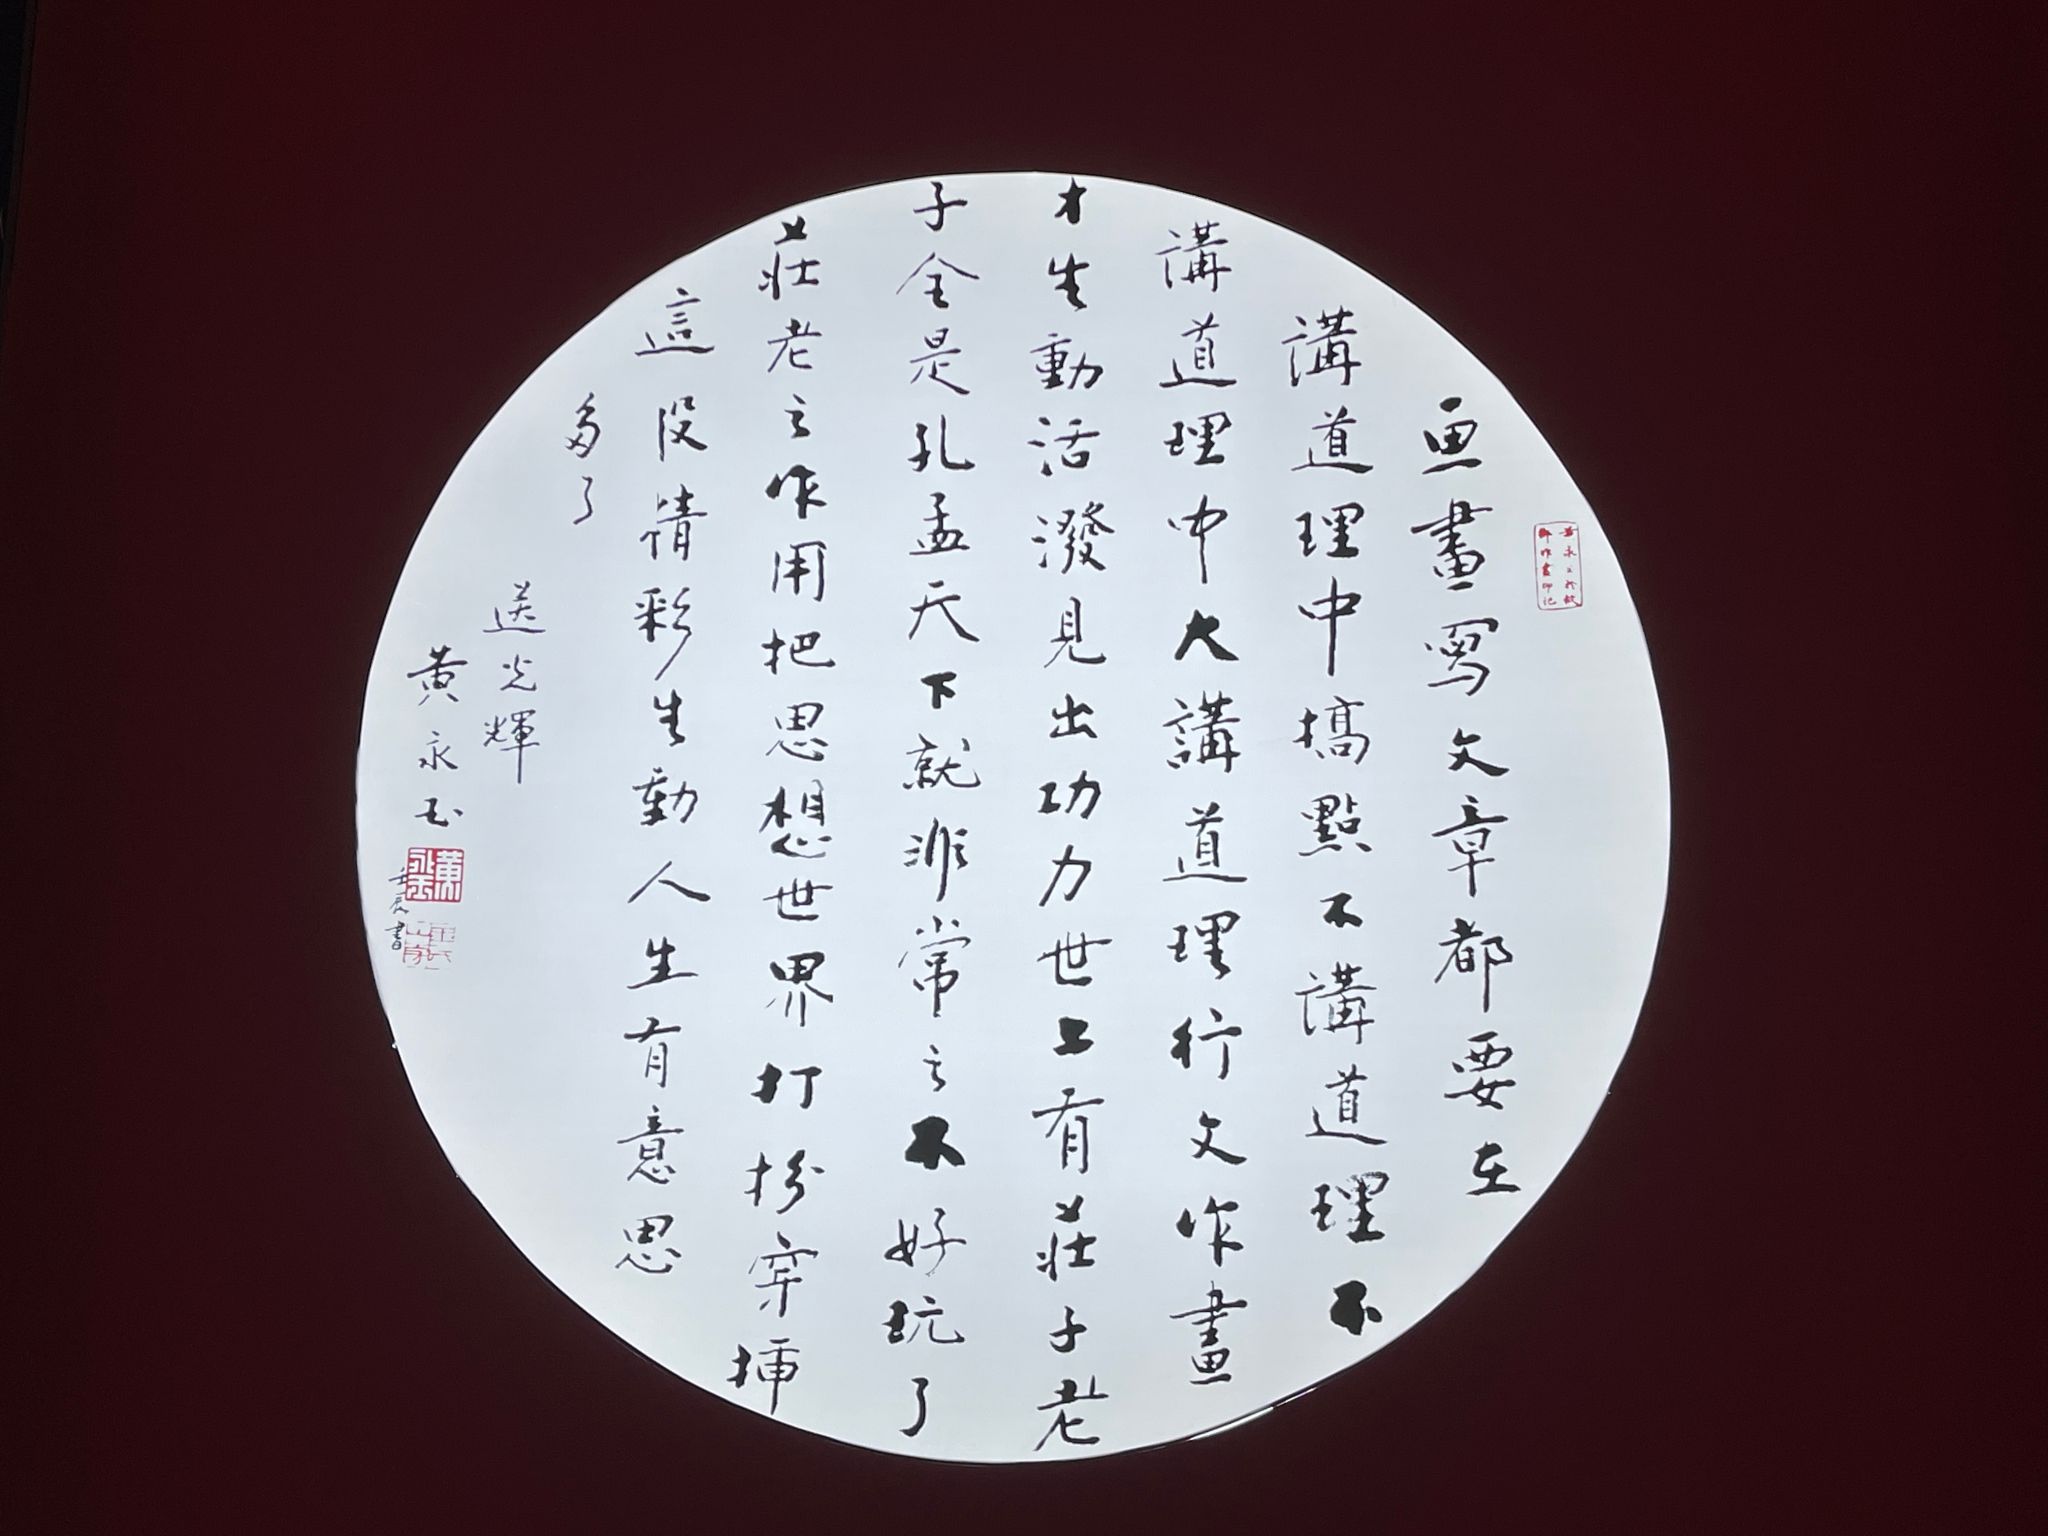 画畫寫文章都要在
講道理中搞點不講道理不
講道理中大講道理行文作畫
才生動活潑見出功力世上有莊子老
子全是孔孟天下就非常之不好玩了
莊老之作用把思想世界打扮穿插
這段情彩生動人生有意思
多了
送光輝
黃永玉
壬辰書
黃永玉